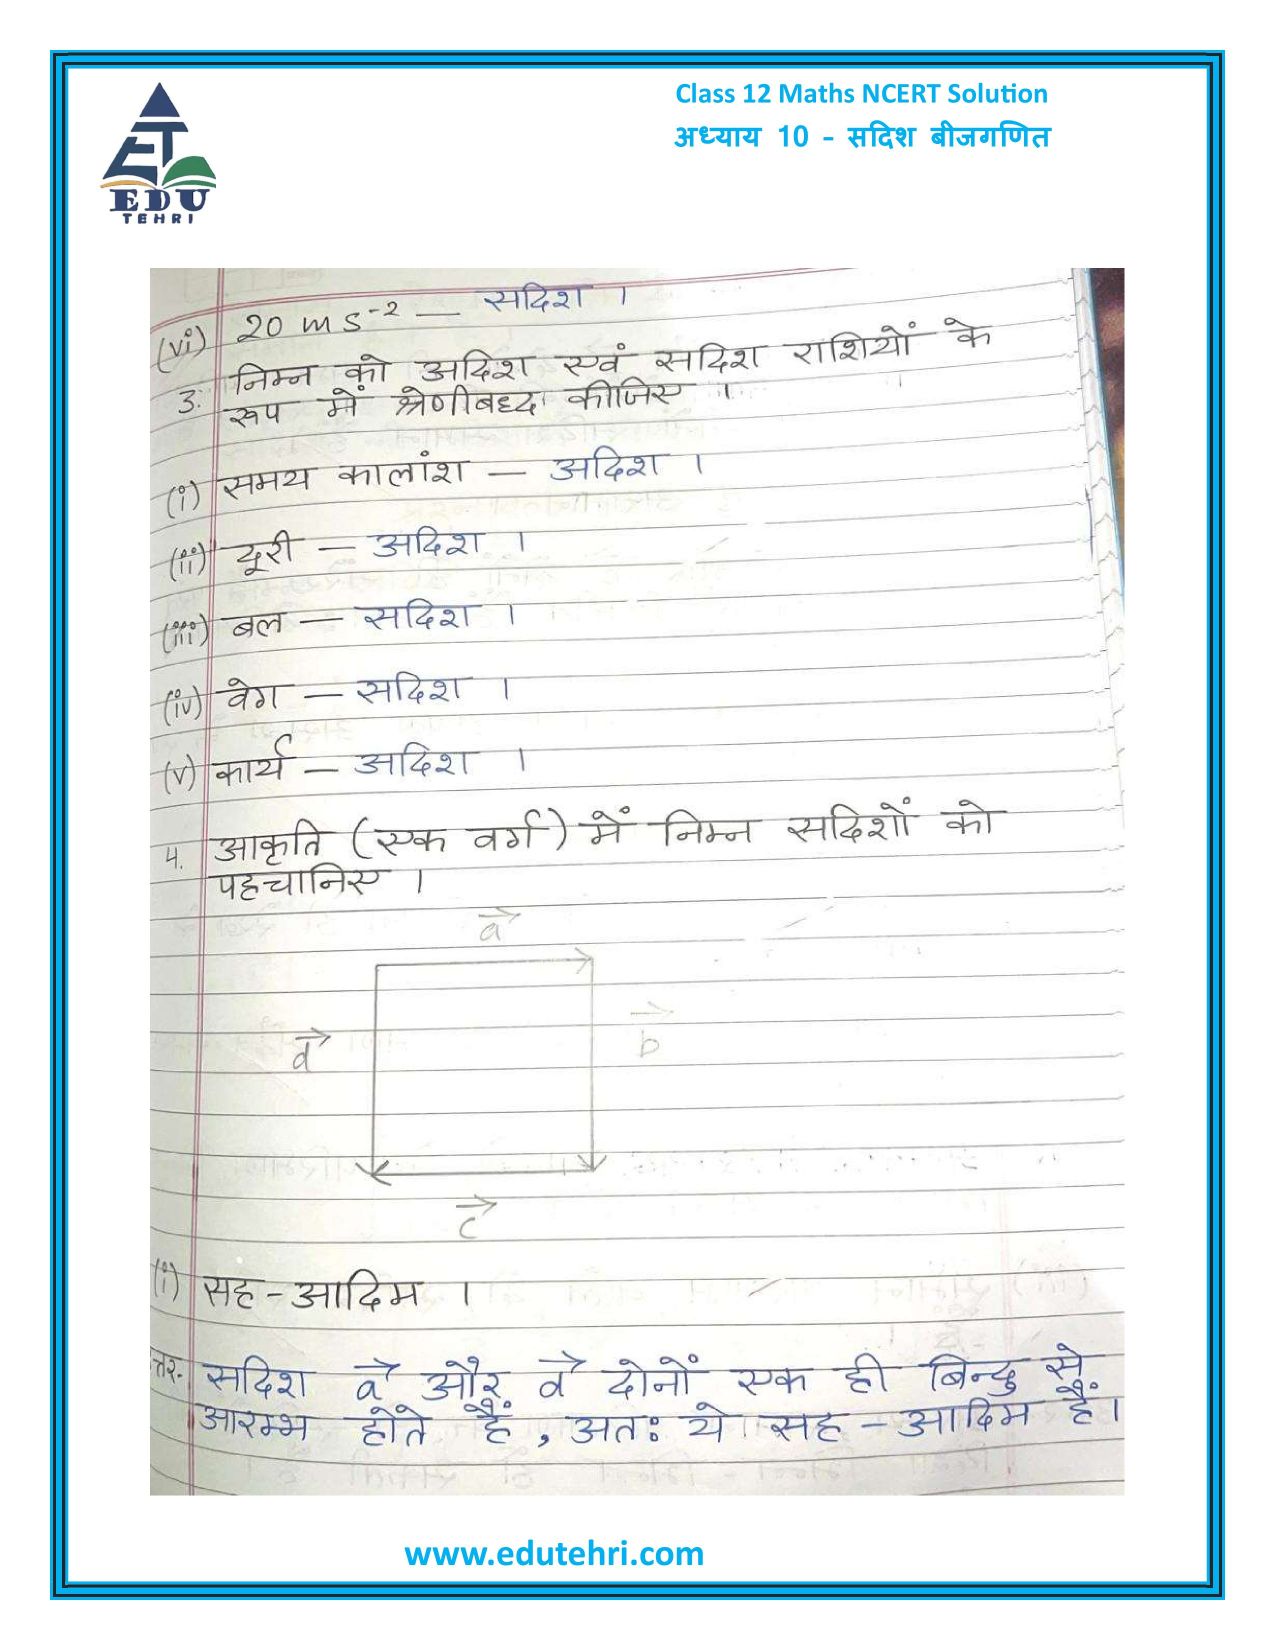 Class 12 Maths NCERT Solution
अध्याय 10 - सदिश बीजगणित
EDU
TEHRI
(vi) 20 m s⁻² — सदिश ।
3. निम्न को अदिश एवं सदिश राशियों के
रूप में श्रेणीबध्द कीजिए ।
(i) समय कालांश — अदिश ।
(ii) दूरी — अदिश ।
(iii) बल — सदिश ।
(iv) वेग — सदिश ।
(v) कार्य — अदिश ।
4. आकृति (एक वर्ग) में निम्न सदिशों को
पहचानिए ।
a⃗
d⃗
b⃗
c⃗
(i) सह-आदिम ।
त्तर. सदिश a⃗ और d⃗ दोनों एक ही बिन्दु से
आरम्भ होते हैं, अतः ये सह-आदिम हैं।
www.edutehri.com